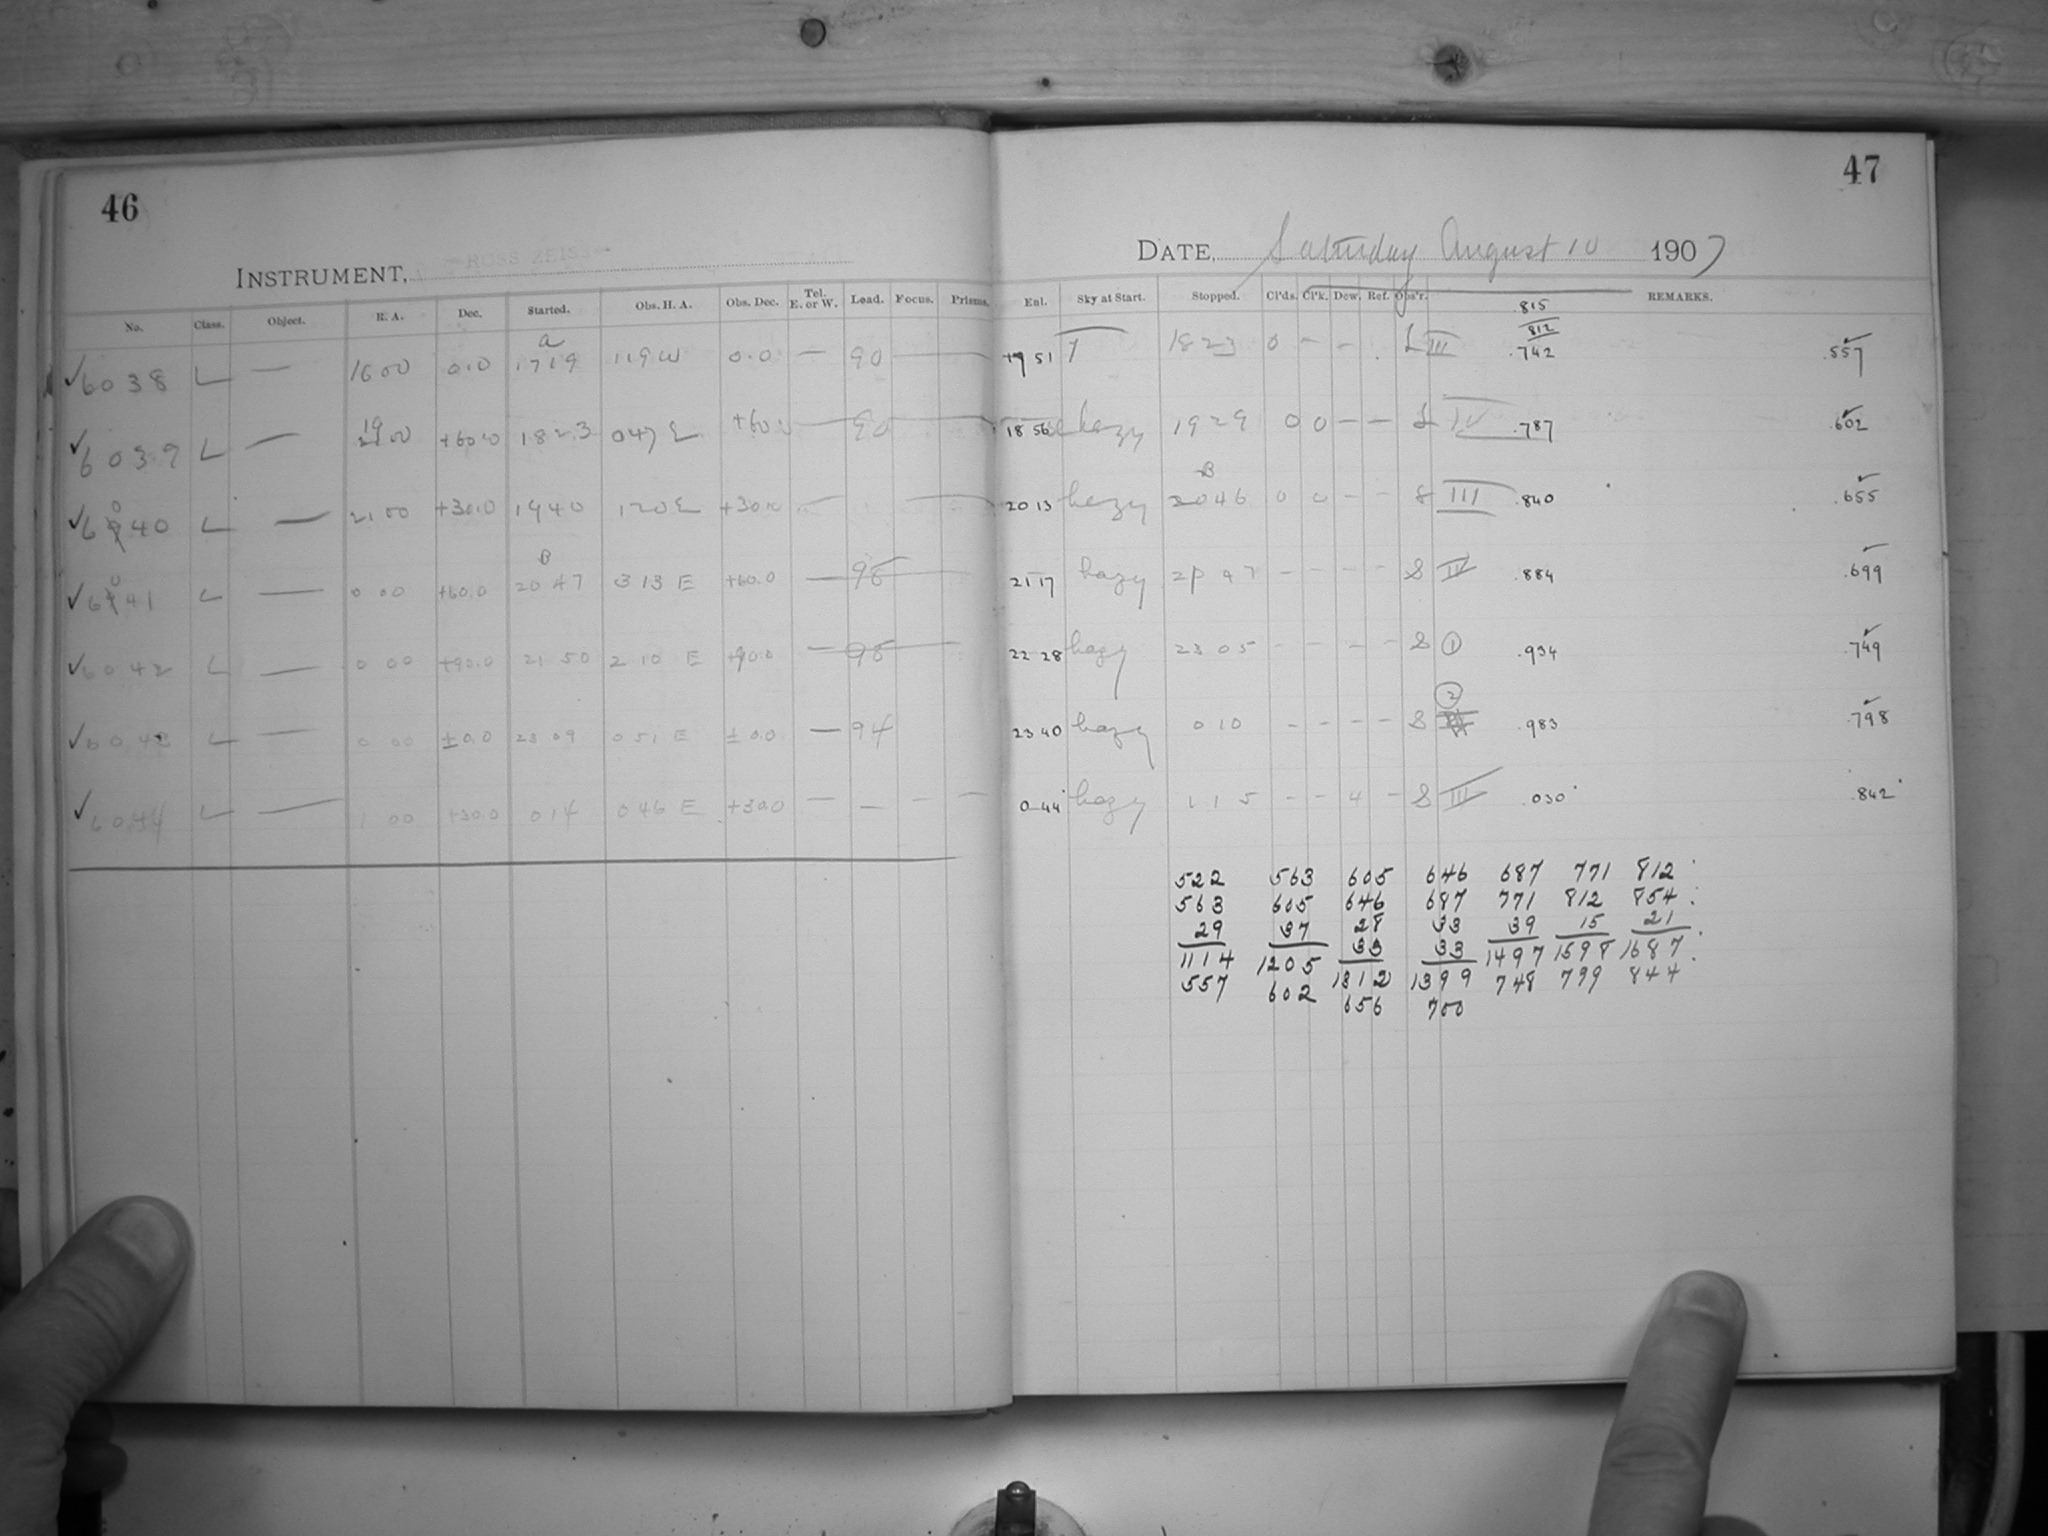 46
INSTRUMENT, ROSS ZEISS
No. Class. Object. R. A. Dec. Started. Obs. H. A. Obs. Dec. Tel. E. or W. Lead. Focus. Prisms.
✓6038 L — 1600 0.0 a 1719 119 W 0.0 — 90 —
✓6039 L — 19 00 +60.0 1823 047 E +60.0 — 90 —
✓6040 L — 2100 +30.0 1940 120 E +30.0 —
✓6041 L — 0 00 +60.0 B 20 47 313 E +60.0 — 98 —
✓6042 L — 0 00 +90.0 21 50 2 10 E +90.0 — 98 —
✓6043 L — 0 00 ±0.0 23 09 0 51 E ±0.0 — 94
✓6044 L — 1 00 +30.0 014 046 E +30.0 — — — —
47
DATE, Saturday August 10 1907
Enl. Sky at Start. Stopped. Cl'ds. Cl'k. Dew. Ref. Obs'r. REMARKS.
.815
.812
17 51 1823 0 - - L III .742 .557
18 56 hazy 1929 0 0 - - L IV .787 .602
20 13 hazy B 2046 0 0 - - S III .840 .655
21 17 hazy 21 47 - - - - S IV .884 .699
22 28 hazy 23 05 - - - - S ① .934 .749
23 40 hazy 0 10 - - - - S ② .983 .798
0 44 hazy 1 15 - - 4 - S III .030 .842
522 563 605 646 687 771 812
563 605 646 687 771 812 854
29 37 28 33 39 15 21
1114 1205 33 33 1497 1598 1687
557 602 1312 1399 748 799 844
656 700